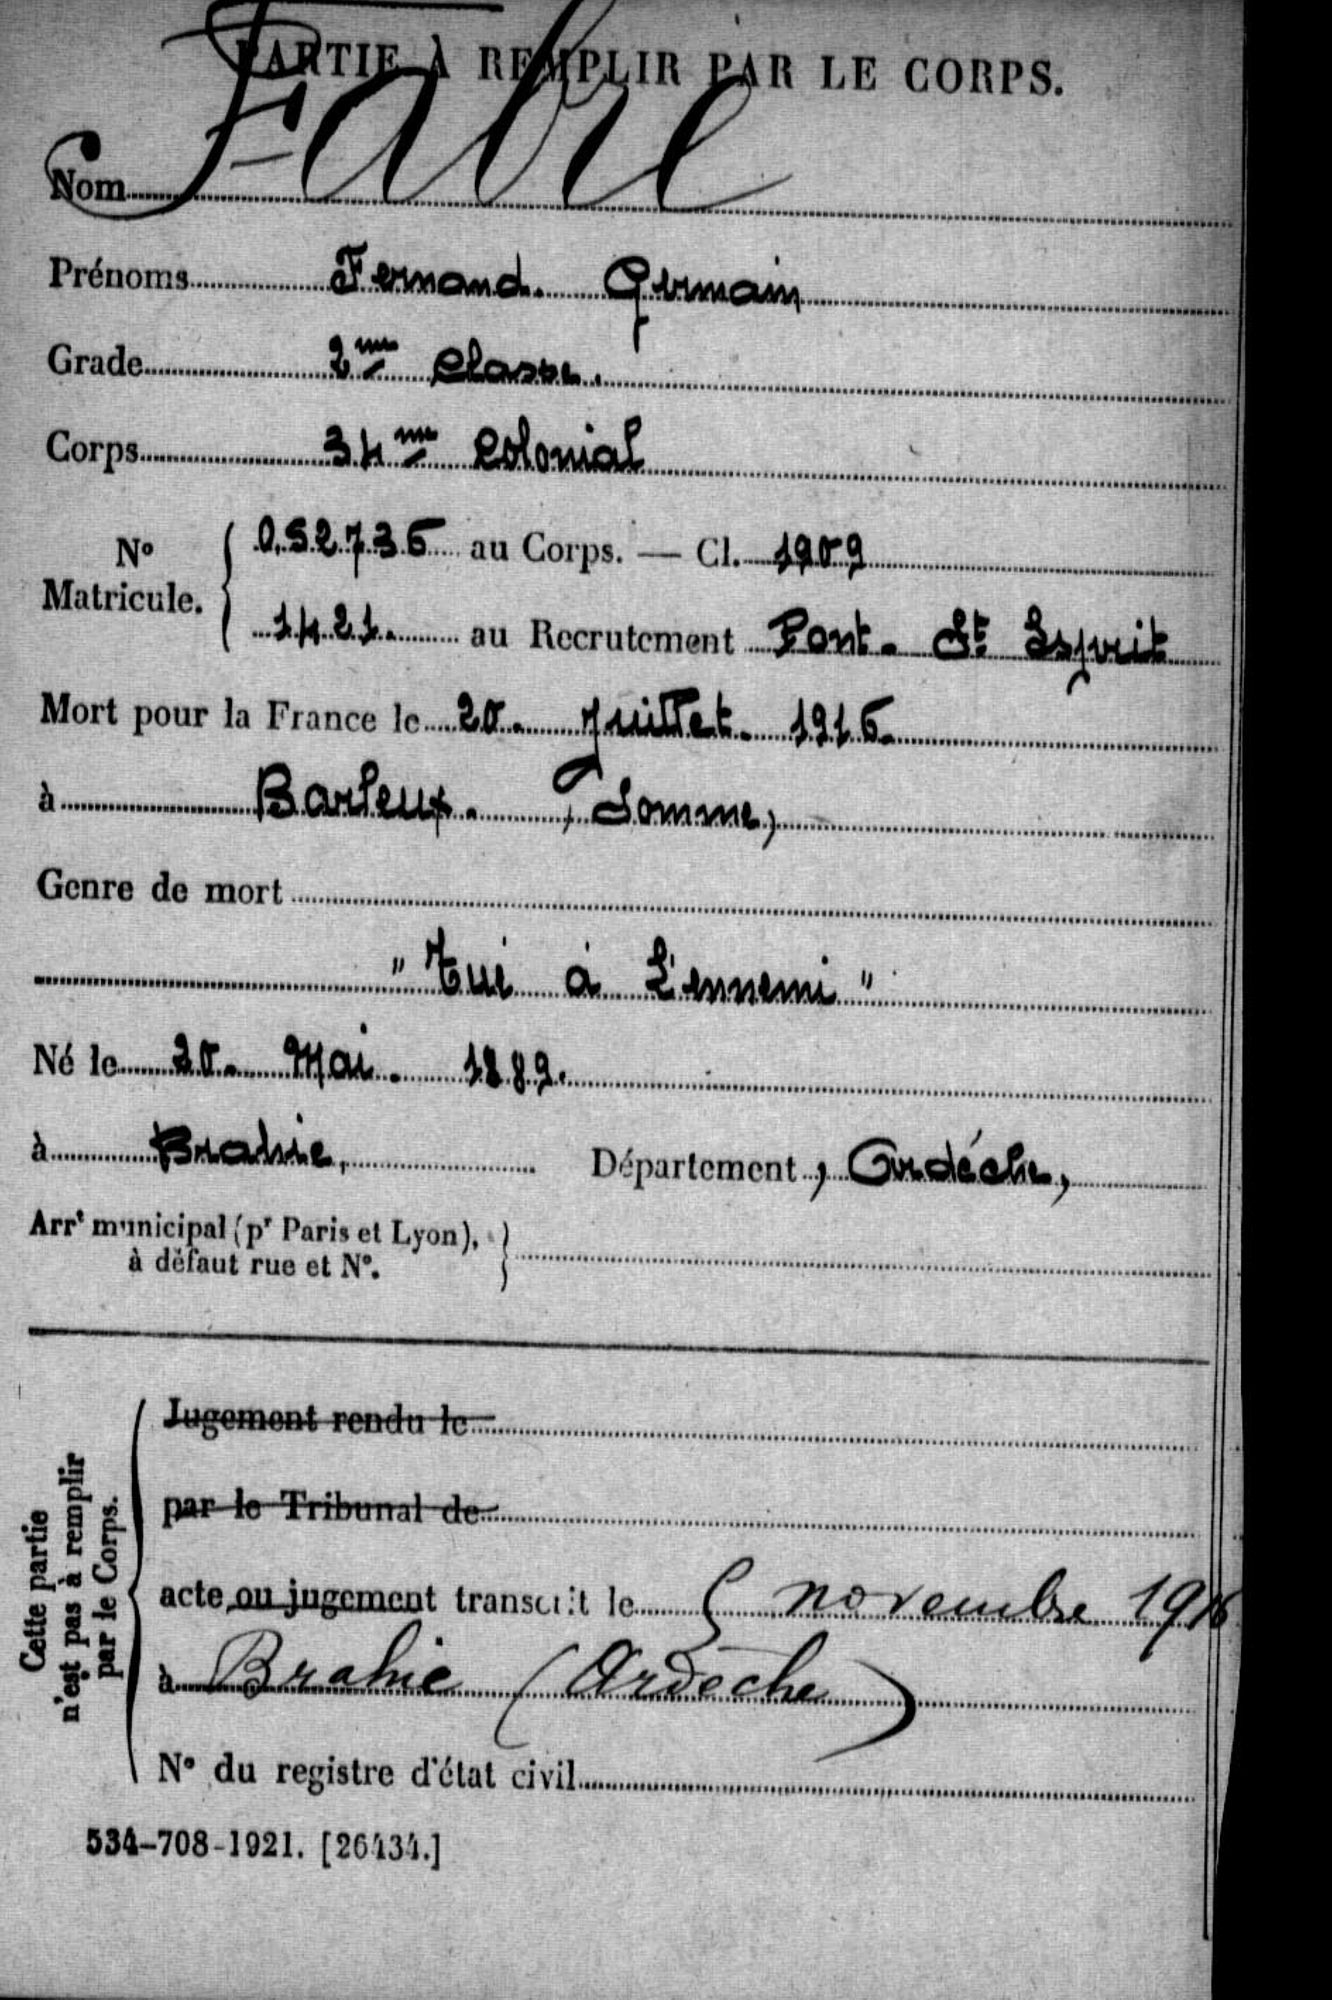 PARTIE À REMPLIR PAR LE CORPS.
Nom Fabre
Prénoms Fernand. Germain
Grade 2me Classe.
Corps 34me Colonial
No Matricule. { 052736 au Corps. — Cl. 1909
1421. au Recrutement Pont-St Esprit
Mort pour la France le 20. Juillet. 1916.
à Barleux. , Somme,
Genre de mort
" Tué à L'ennemi "
Né le 20. Mai. 1889.
à Brahie, Département , Ardéche,
Arrt municipal (pr Paris et Lyon), }
à défaut rue et No.
Cette partie
n'est pas à remplir
par le Corps.
Jugement rendu le
par le Tribunal de
acte ou jugement transcrit le 5 novembre 1916
à Brahic (Ardèche)
No du registre d'état civil
534-708-1921. [26434.]